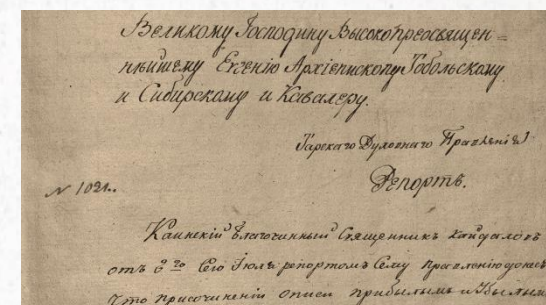 Великому Господину Высокопреосвящен=
нѣйшему Евгенію Архіепископу Тобольскому
и Сибирскому и Кавалеру.
Тарскаго Духовнаго Правленія
Репортъ.
№ 1021.
Каинскій благочинный Священникъ
отъ 6го сего Іюля репортомъ сему правленію донесъ
что присочиненіи описи прибылымъ и убылымъ